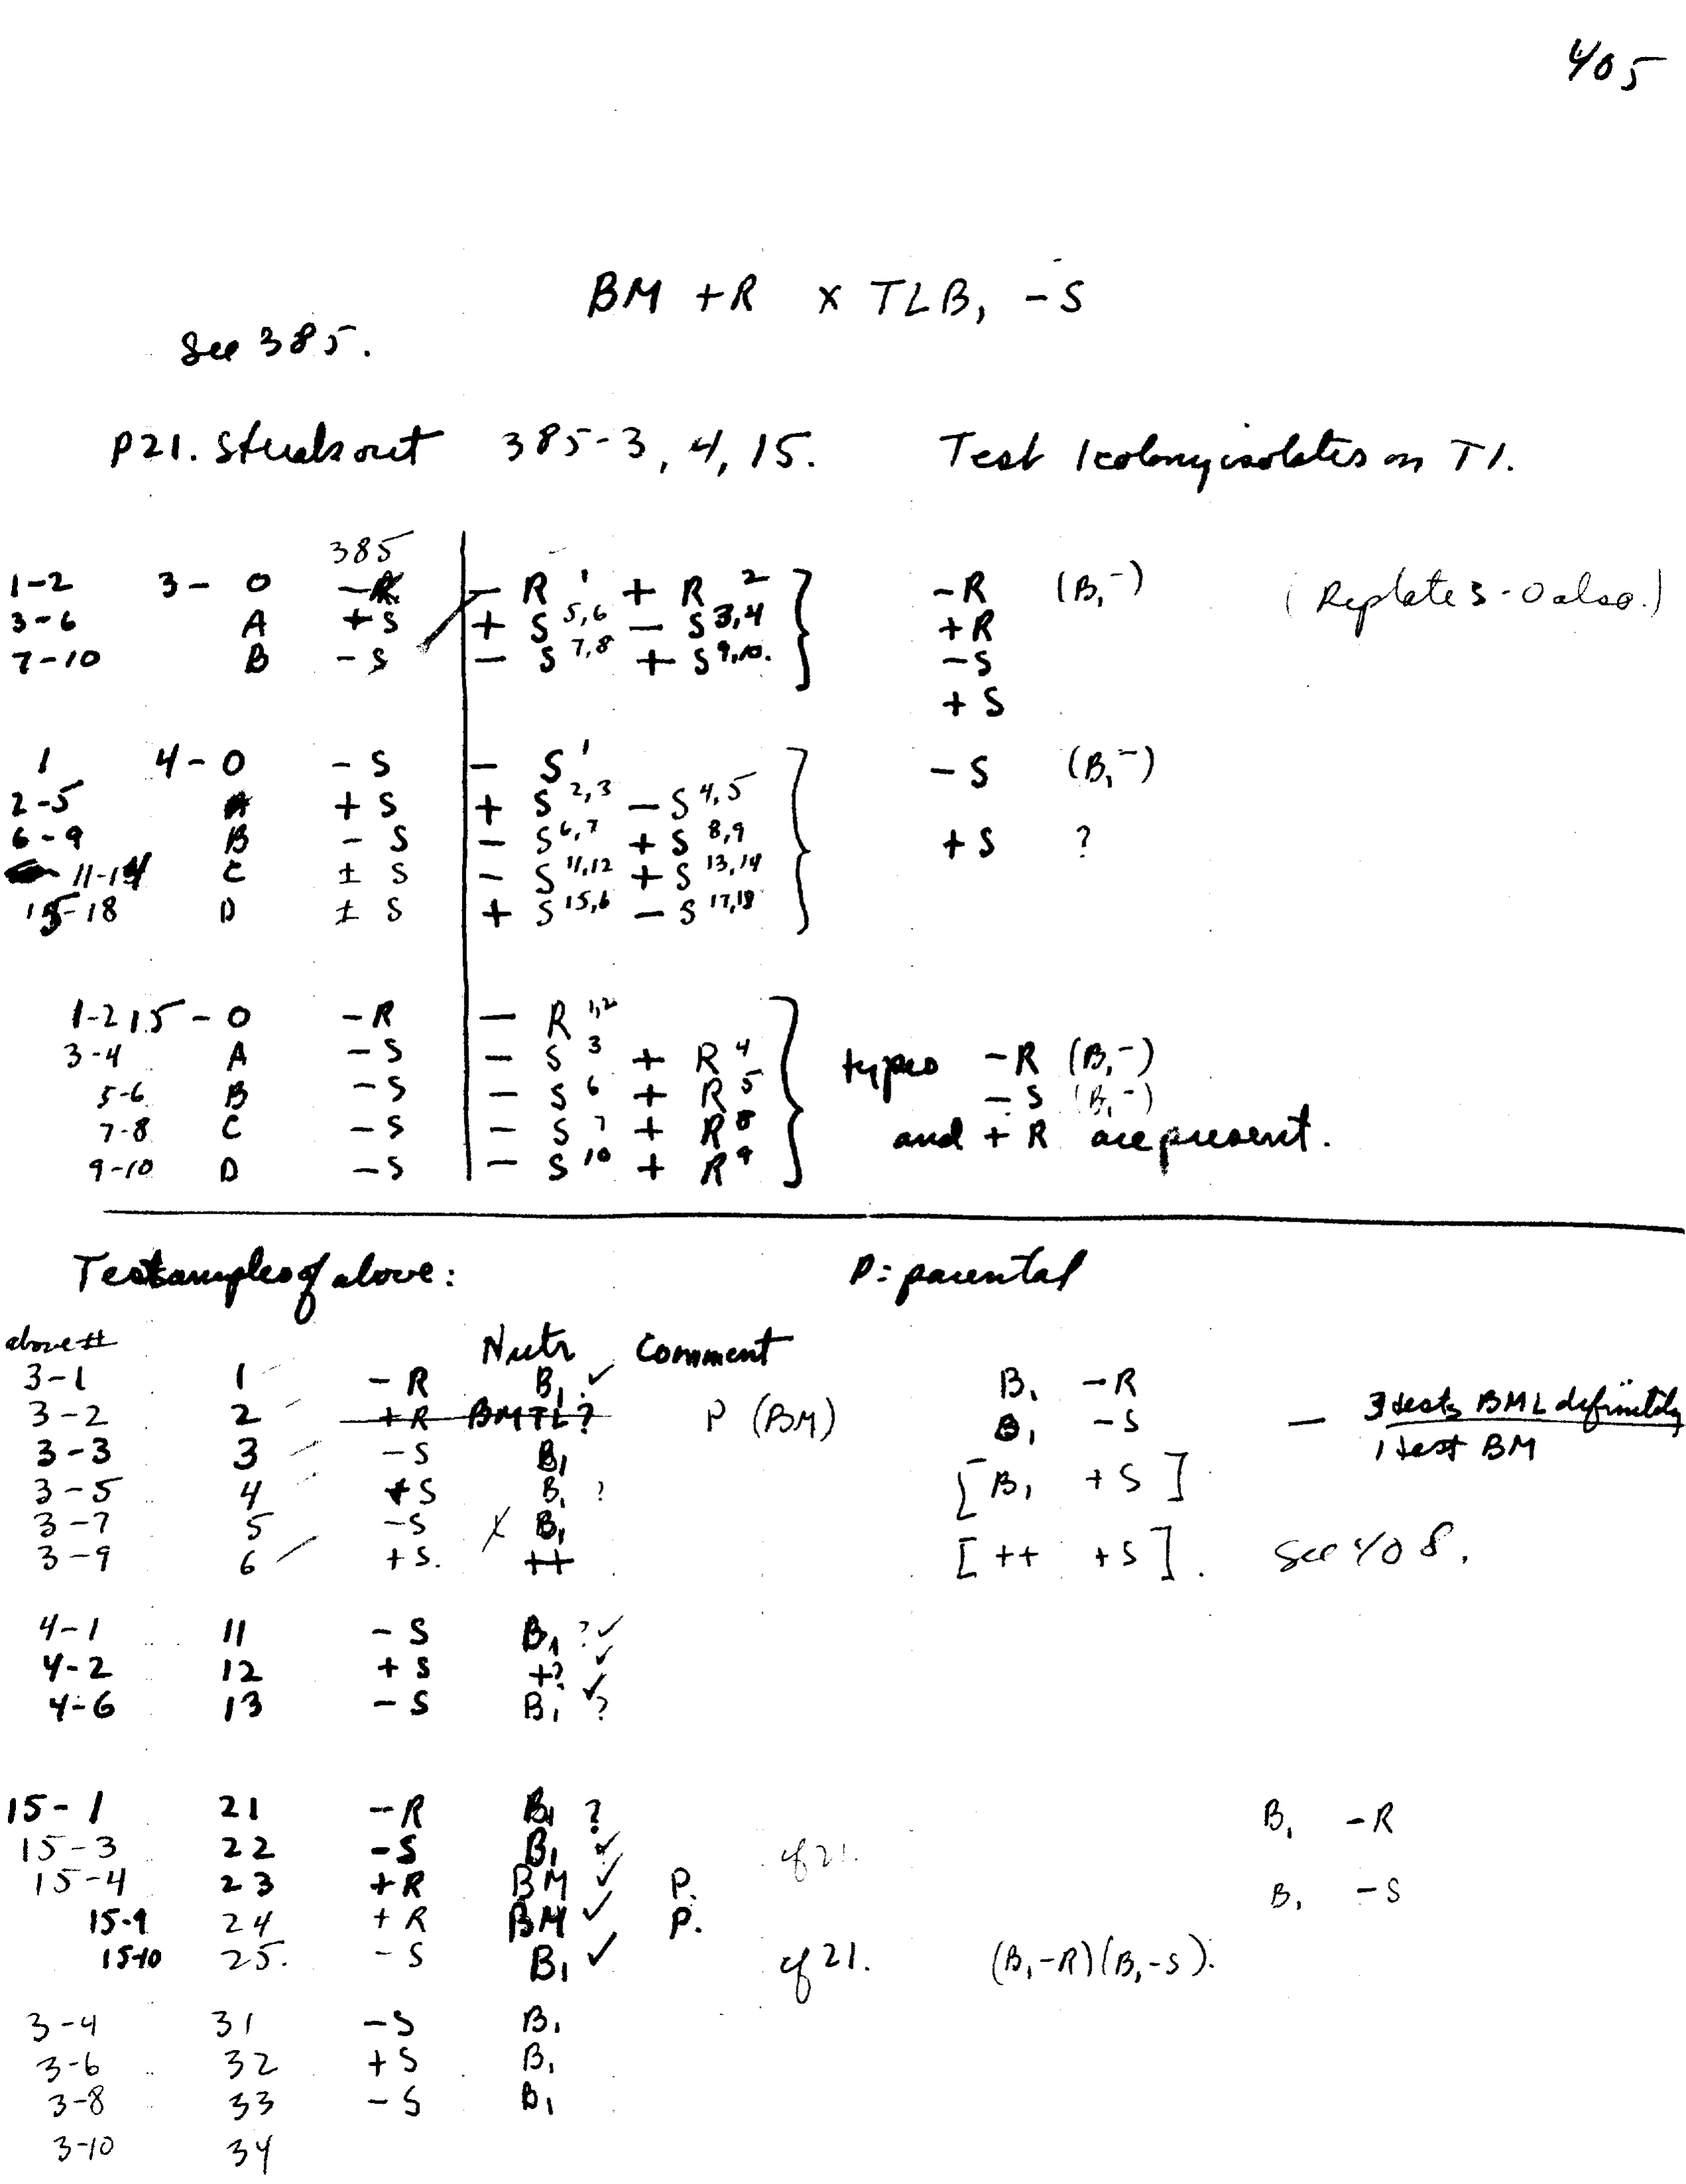 405
BM +R x TLB1 -S
See 385.
P21. Streak out 385-3, 4, 15. Test 1 colony isolates on T1.
385
1-2 3- O -R - R 1 + R 2 -R (B1-) (Replate 3-0 also.)
3-6 A +S + S 5,6 - S 3,4 +R
7-10 B -S - S 7,8 + S 9,10. -S
+S
1 4-O -S - S 1 -S (B1-)
2-5 A +S + S 2,3 - S 4,5
6-9 B -S - S 6,7 + S 8,9 +S ?
11-14 C ± S - S 11,12 + S 13,14
15-18 D ± S + S 15,6 - S 17,18
1-2 15-O -R - R 1,2
3-4 A -S - S 3 + R 4 types -R (B1-)
5-6 B -S - S 6 + R 5 -S (B1-)
7-8 C -S - S 7 + R 8 and +R are present.
9-10 D -S - S 10 + R 9
Test samples of above: P = parental
above # Nutr Comment
3-1 1 -R B1 ✓ B1 -R
3-2 2 +R BMTL? P (BM) B1 -S — 3 tests BML definitely
1 test BM
3-3 3 -S B1
3-5 4 +S B1 ? [B1 +S]
3-7 5 -S X B1
3-9 6 +S. ++ [++ +S]. See 408.
4-1 11 -S B1 ? ✓
4-2 12 +S +? ✓
4-6 13 -S B1 ✓ ?
15-1 21 -R B1 ? B1 -R
15-3 22 -S B1 ✓ cf 21.
15-4 23 +R BM ✓ P. B1 -S
15-9 24 +R BM ✓ P.
15-10 25. -S B1 ✓ cf 21. (B1-R)(B1-S).
3-4 31 -S B1
3-6 32 +S B1
3-8 33 -S B1
3-10 34